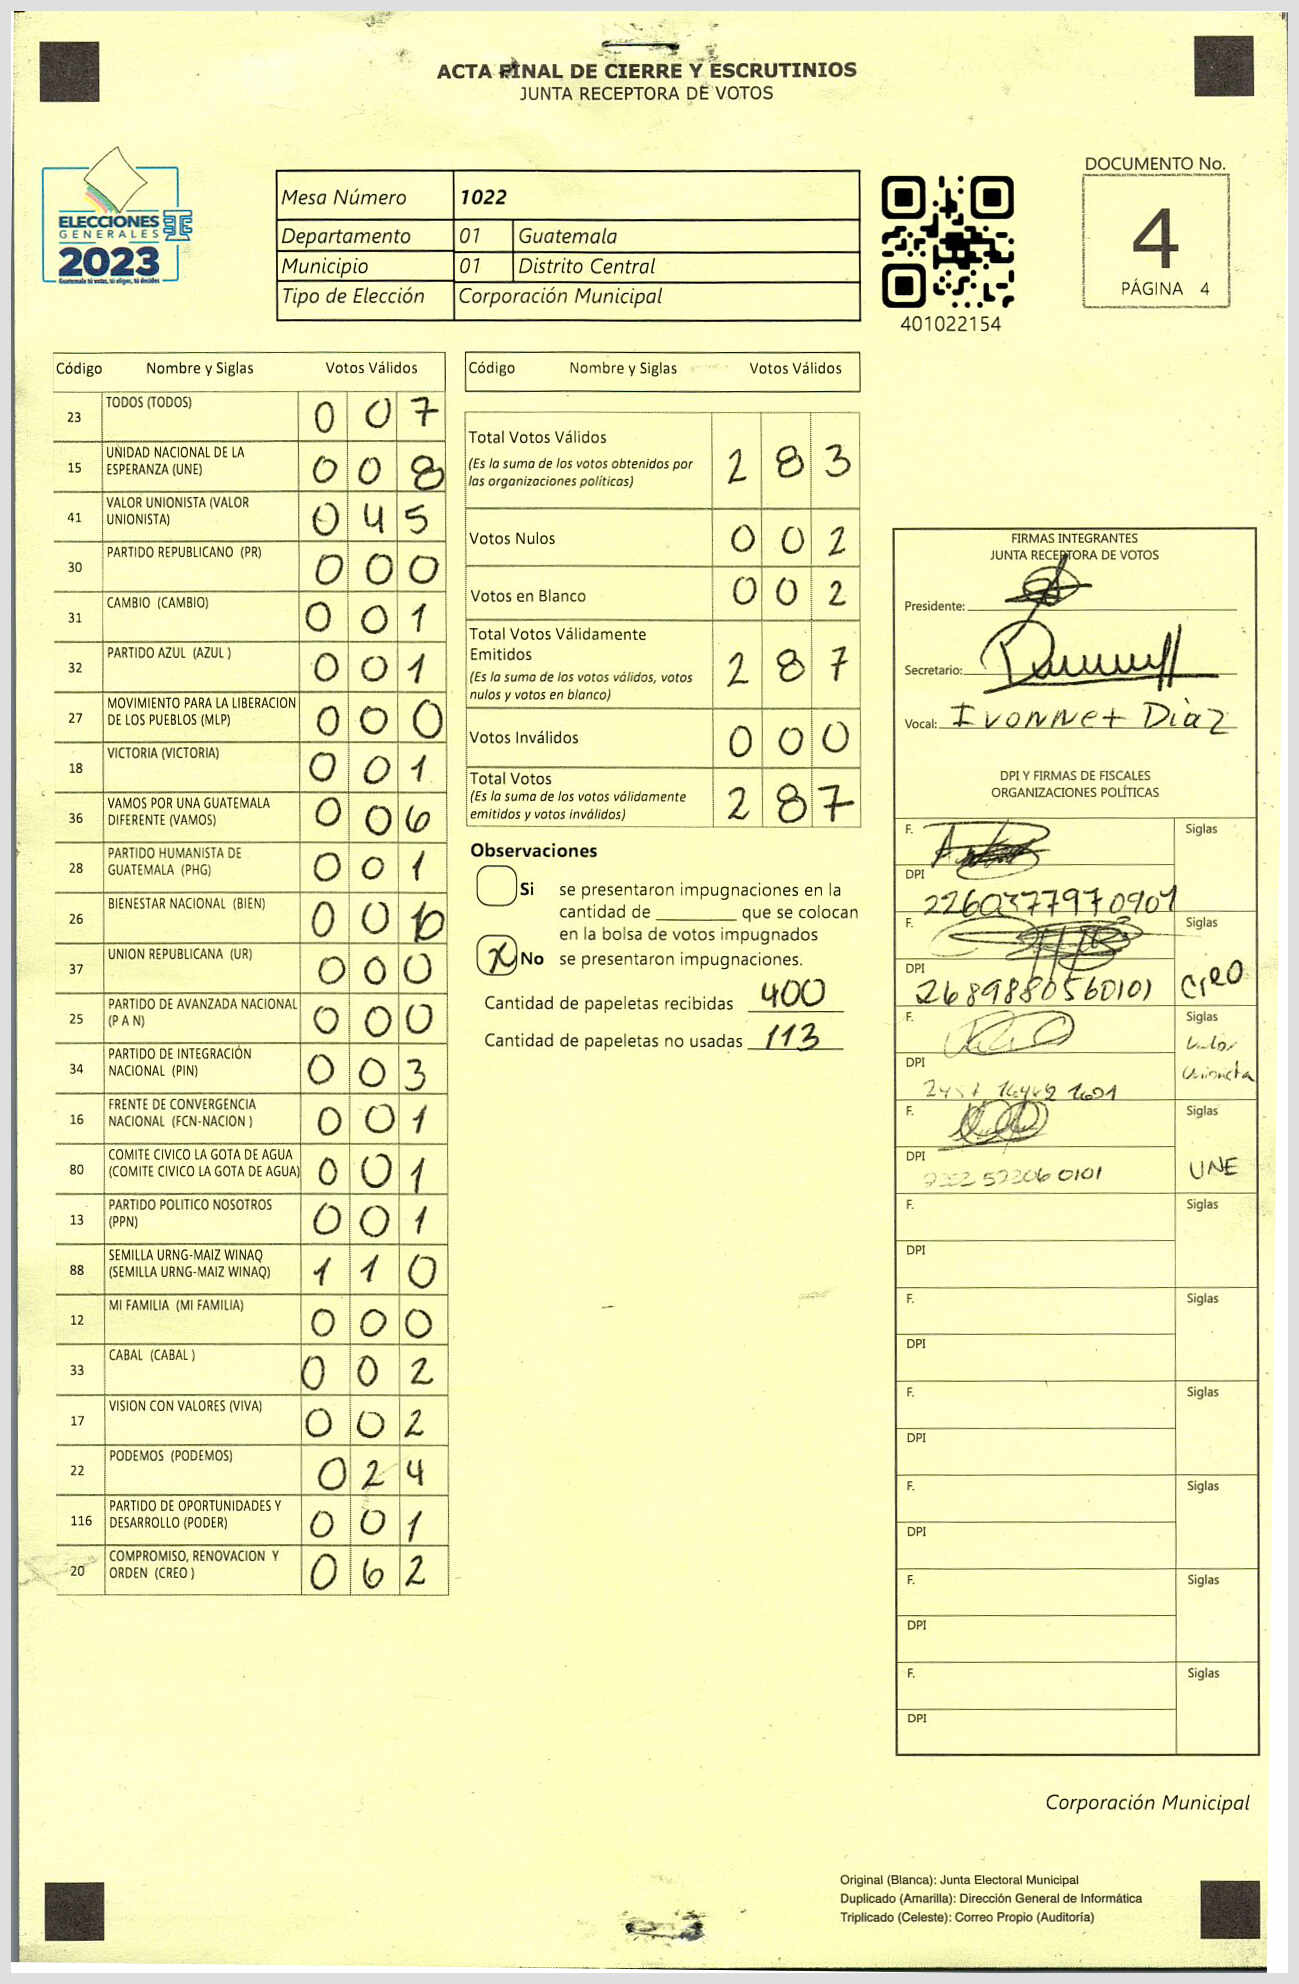 ACTA FINAL DE CIERRE Y ESCRUTINIOS
JUNTA RECEPTORA DE VOTOS
ELECCIONES
GENERALES
2023
Guatemala tú votas, tú eliges, tú decides
Mesa Número 1022
Departamento 01 Guatemala
Municipio 01 Distrito Central
Tipo de Elección Corporación Municipal
401022154
DOCUMENTO No.
4
PÁGINA 4
Código Nombre y Siglas Votos Válidos
23 TODOS (TODOS) 0 0 7
15 UNIDAD NACIONAL DE LA
ESPERANZA (UNE) 0 0 8
41 VALOR UNIONISTA (VALOR
UNIONISTA) 0 4 5
30 PARTIDO REPUBLICANO (PR) 0 0 0
31 CAMBIO (CAMBIO) 0 0 1
32 PARTIDO AZUL (AZUL ) 0 0 1
27 MOVIMIENTO PARA LA LIBERACION
DE LOS PUEBLOS (MLP) 0 0 0
18 VICTORIA (VICTORIA) 0 0 1
36 VAMOS POR UNA GUATEMALA
DIFERENTE (VAMOS) 0 0 6
28 PARTIDO HUMANISTA DE
GUATEMALA (PHG) 0 0 1
26 BIENESTAR NACIONAL (BIEN) 0 0
37 UNION REPUBLICANA (UR) 0 0 0
25 PARTIDO DE AVANZADA NACIONAL
(P A N) 0 0 0
34 PARTIDO DE INTEGRACIÓN
NACIONAL (PIN) 0 0 3
16 FRENTE DE CONVERGENCIA
NACIONAL (FCN-NACION ) 0 0 1
80 COMITE CIVICO LA GOTA DE AGUA
(COMITE CIVICO LA GOTA DE AGUA) 0 0 1
13 PARTIDO POLITICO NOSOTROS
(PPN) 0 0 1
88 SEMILLA URNG-MAIZ WINAQ
(SEMILLA URNG-MAIZ WINAQ) 1 1 0
12 MI FAMILIA (MI FAMILIA) 0 0 0
33 CABAL (CABAL ) 0 0 2
17 VISION CON VALORES (VIVA) 0 0 2
22 PODEMOS (PODEMOS) 0 2 4
116 PARTIDO DE OPORTUNIDADES Y
DESARROLLO (PODER) 0 0 1
20 COMPROMISO, RENOVACION Y
ORDEN (CREO ) 0 6 2
Código Nombre y Siglas Votos Válidos
Total Votos Válidos
(Es la suma de los votos obtenidos por
las organizaciones políticas) 2 8 3
Votos Nulos 0 0 2
Votos en Blanco 0 0 2
Total Votos Válidamente
Emitidos
(Es la suma de los votos válidos, votos
nulos y votos en blanco) 2 8 7
Votos Inválidos 0 0 0
Total Votos
(Es la suma de los votos válidamente
emitidos y votos inválidos) 2 8 7
Observaciones
Si se presentaron impugnaciones en la
cantidad de ________ que se colocan
en la bolsa de votos impugnados
X No se presentaron impugnaciones.
Cantidad de papeletas recibidas 400
Cantidad de papeletas no usadas 113
FIRMAS INTEGRANTES
JUNTA RECEPTORA DE VOTOS
Presidente:
Secretario:
Vocal: Ivonnet Diaz
DPI Y FIRMAS DE FISCALES
ORGANIZACIONES POLÍTICAS
F. Siglas
DPI
2260377970901
F. Siglas
DPI
2689880560101 CREO
F. Siglas
Valor
Unionista
DPI
F. Siglas
DPI
0101 UNE
F. Siglas
DPI
F. Siglas
DPI
F. Siglas
DPI
F. Siglas
DPI
F. Siglas
DPI
F. Siglas
DPI
Corporación Municipal
Original (Blanca): Junta Electoral Municipal
Duplicado (Amarilla): Dirección General de Informática
Triplicado (Celeste): Correo Propio (Auditoría)